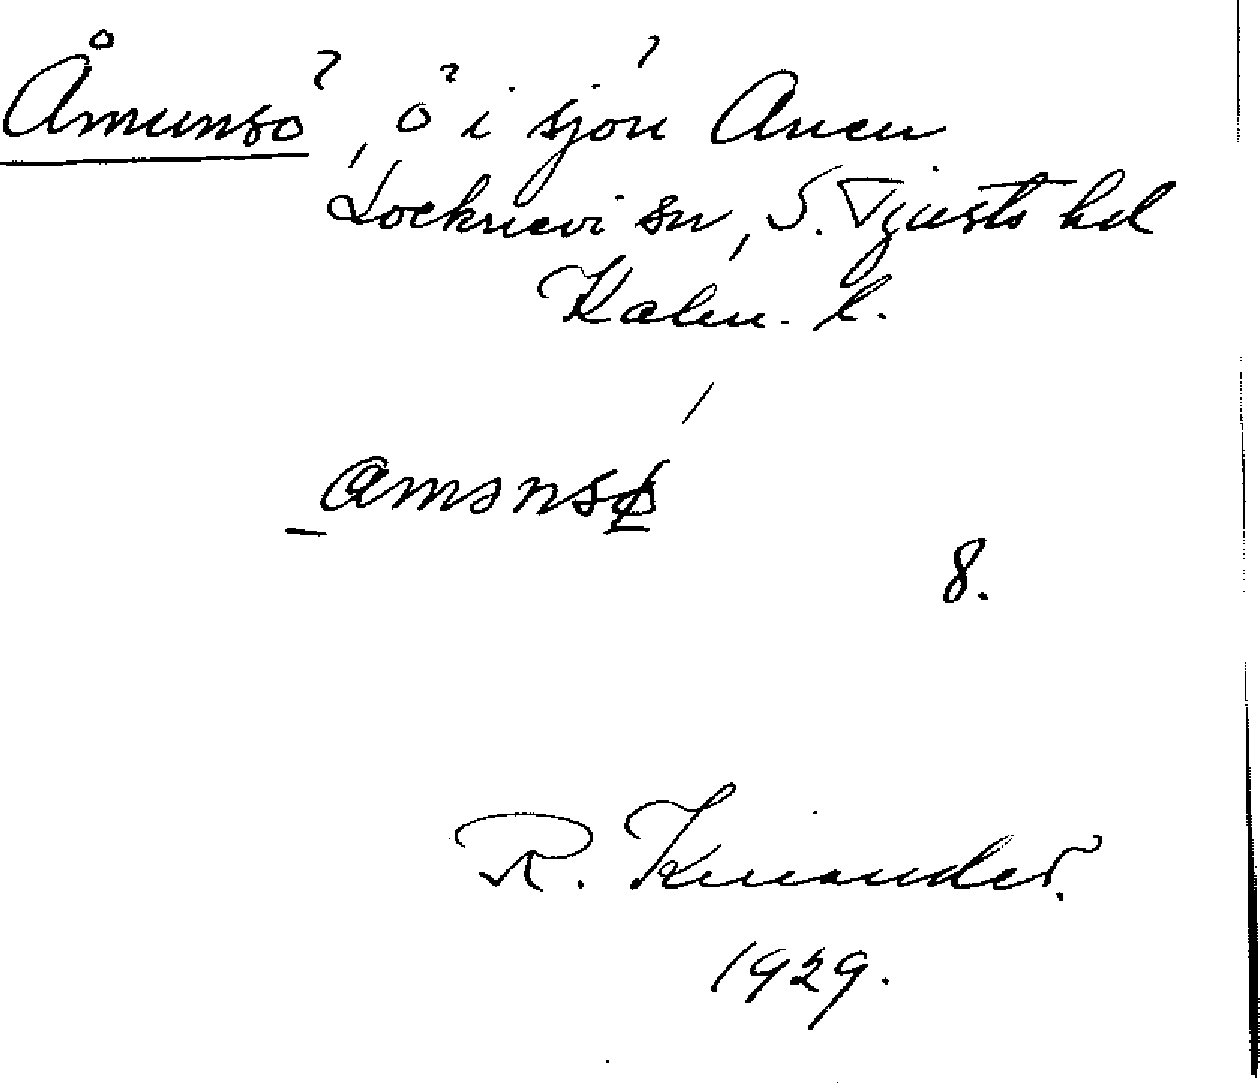 Åmunsö, ö i sjön Anen
Locknevi sn, S. Tjusts hd
Kalm. l.
amənsø
8.
R. Kinander.
1929.